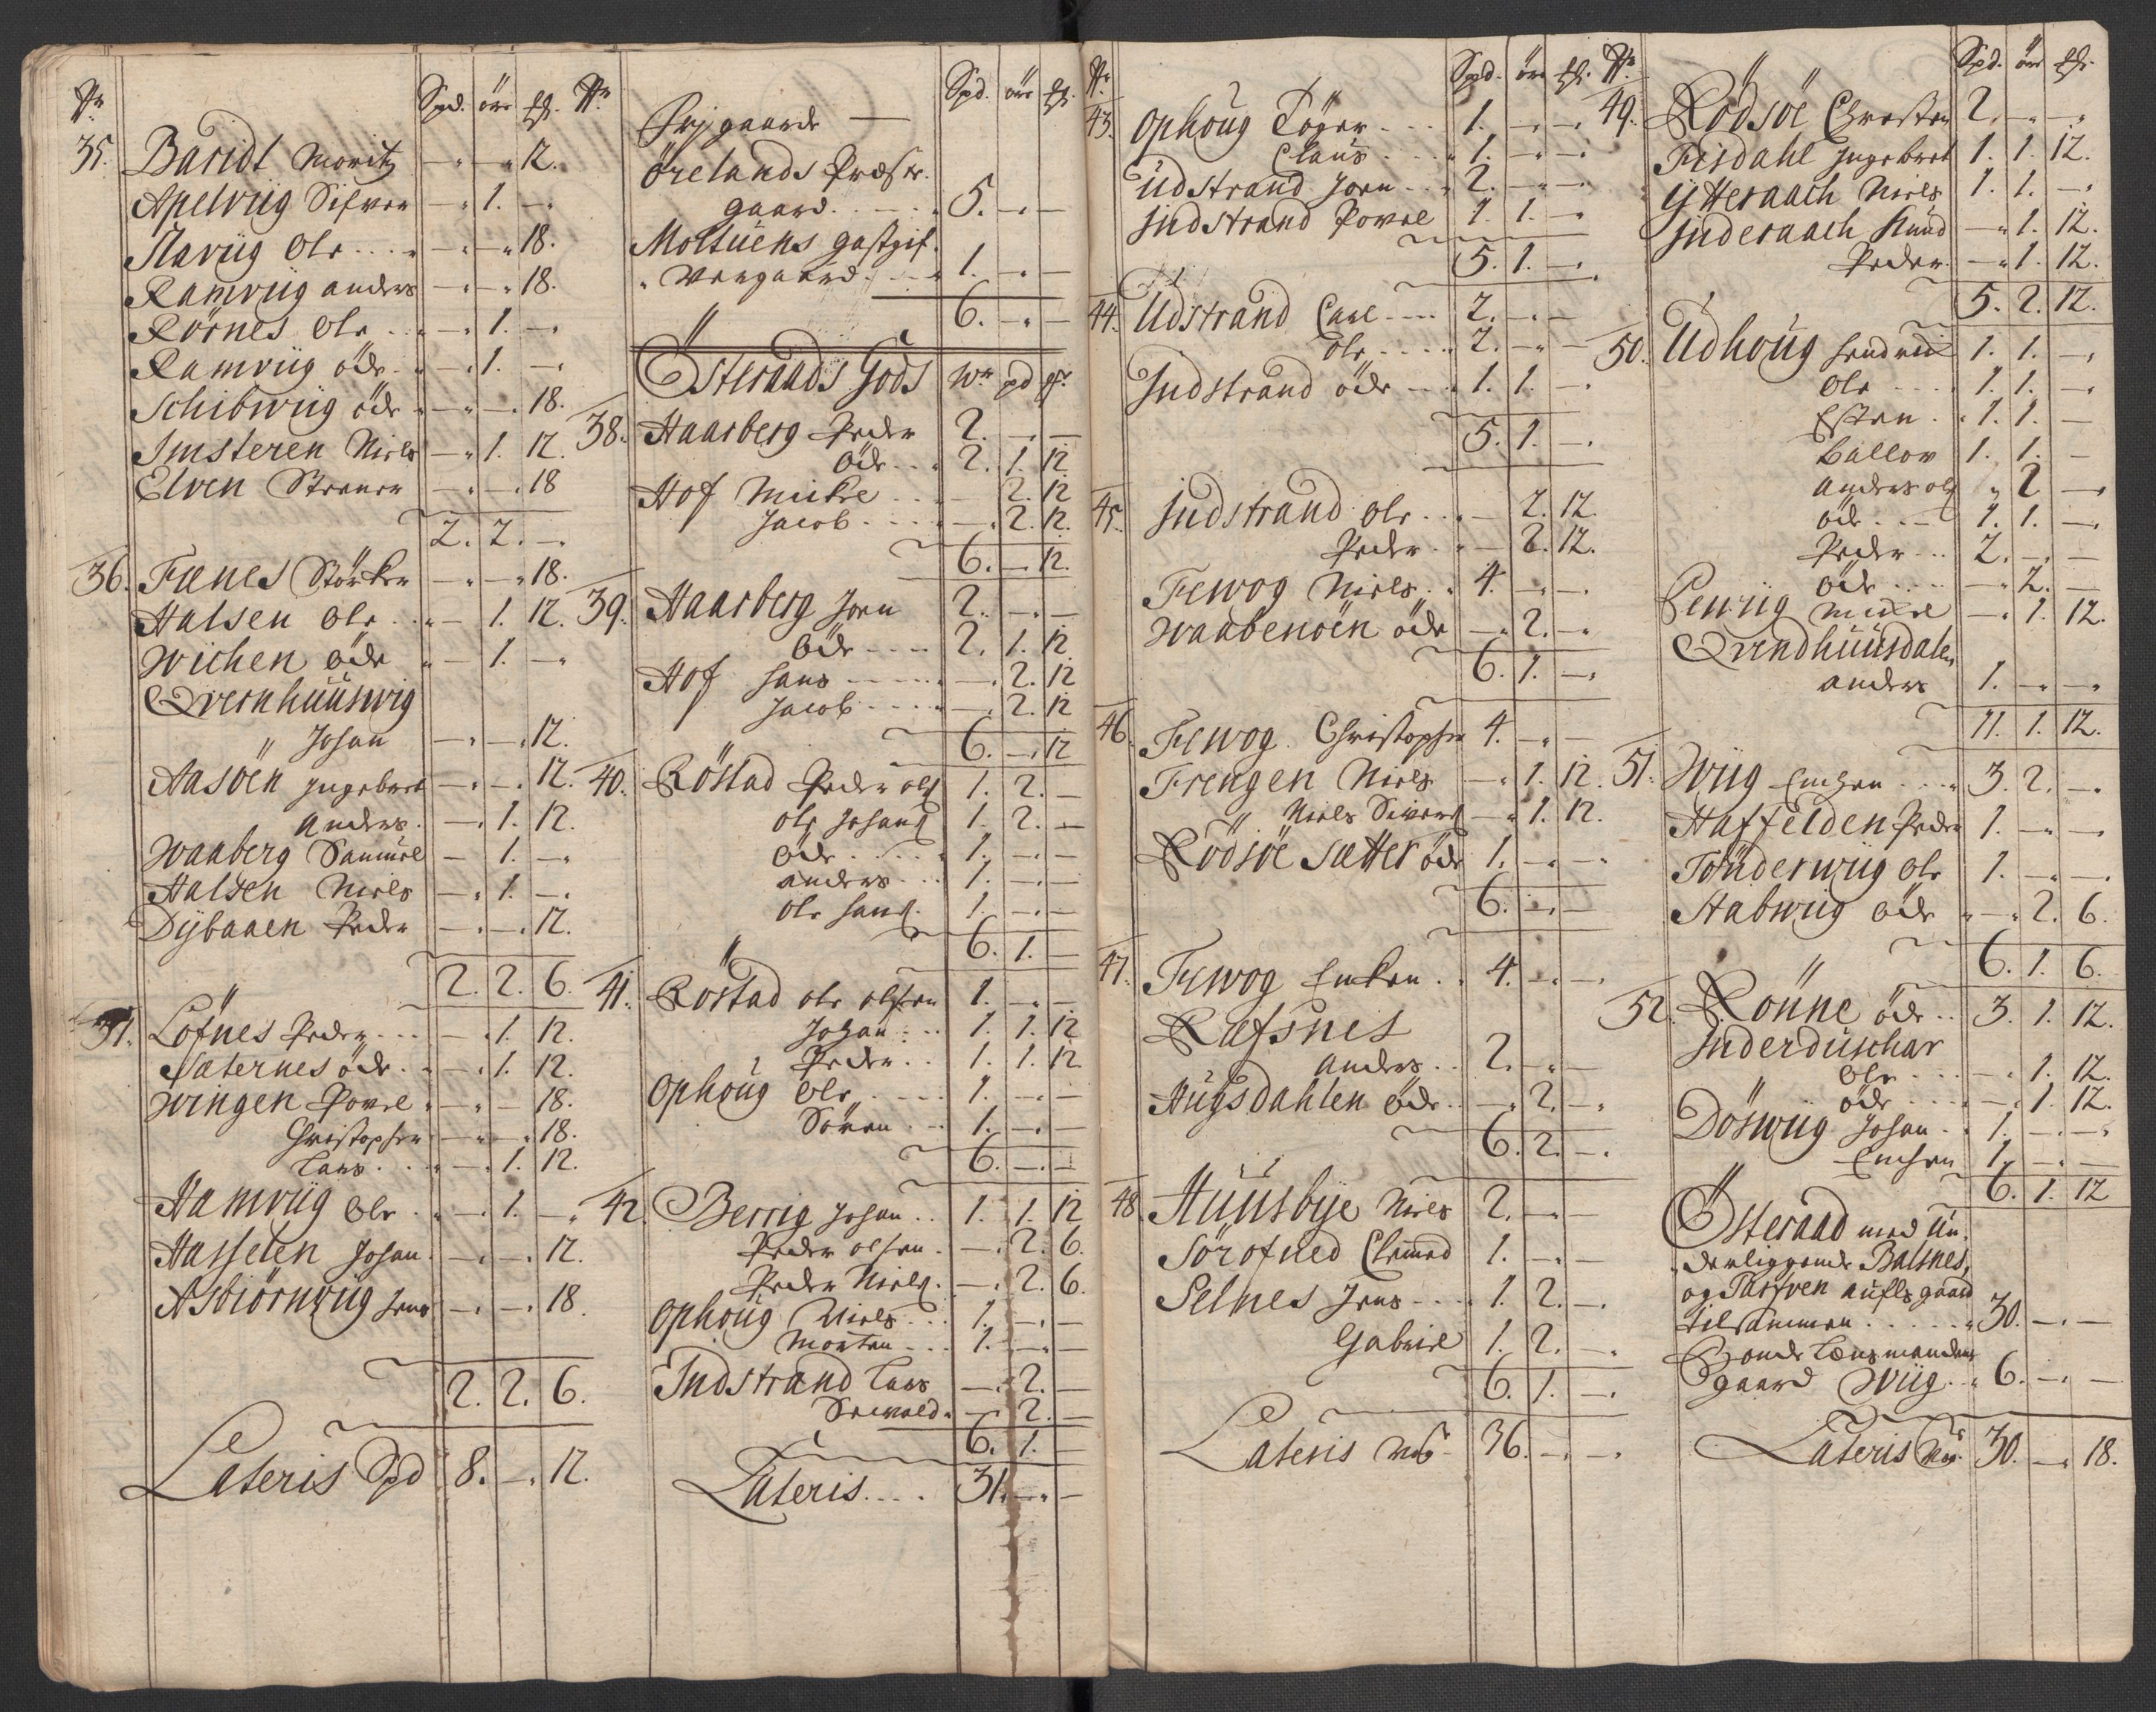 No Spd. öre
35. Baridt Moritz — — 12.
Apelviig Sifver — 1. —
Slaviig Ole — — 18.
Ramviig anders — — 18.
Rörnes Ole — 1. —
Ramviig öde — 1. —
Schibwiig öde — — 18.
Imsteren Niels — 1. 12.
Elven — — 18
2. 2. —
36. Fænes Störker — — 18.
Halsen Ole — 1. 12.
Wichen öde — 1. —
Qvernhuuswig
Johan — — 12.
Aasöen Ingebret — — 12.
Anders — 1. 12.
Waaberg Samuel — 1. —
Halsen Niels — 1. —
Dybaaen Peder — — 12.
2. 2. 6.
37. Löfnes Peder — 1. 12.
Sæternes öde — 1. 12.
Wingen Povel — — 18.
Christopher — — 18.
Lars — 1. 12.
Hamviig Ole — 1. —
Hasselen Johan — — 12.
Asbiörnviig Jens — — 18.
2. 2. 6.
Lateris Spd 8. — 12.
No Spd. öre
Prygaarde —
Örelands Præste
gaard 5. — —
Moltuens gastgif
vergaard 1. — —
6. — —
Österaads Gods
38. Haarberg Peder 2. — —
öde 2. 1. 12
Hof Mickel — 2. 12
Jacob — 2. 12.
6. — 12.
39. Haarberg Jern 2. — —
öde 2. 1. 12
Hof Hans — 2. 12
Jacob — 2. 12
6. — 12
40. Röstad Peder ols 1. 2. —
ole Johans 1. 2. —
öde 1. — —
anders 1. — —
ole Hans 1. — —
6. 1. —
41. Röstad ole olsen 1. — —
Johan 1. 1. 12
Peder 1. 1. 12
Ophoug Ole 1. — —
Sören 1. — —
6. — —
42. Berrig Johan 1. 1. 12
Peder olsen — 2. 6.
Peder Niels — 2. 6.
Ophoug Niels 1. — —
Morten 1. — —
Indstrand Lars — 2. —
Sewald — 2. —
6. 1. —
Lateris 31. — —
No Spd. öre
43. Ophoug Töger 1. — —
Claus 1. — —
Udstrand Jern 2. — —
Indstrand Povel 1. 1. —
5. 1. —
44. Udstrand Carl 2. — —
Ole 2. — —
Indstrand öde 1. 1. —
5. 1. —
45. Indstrand Ole — 2. 12.
Peder — 2. 12.
Fewog Niels 4. — —
Waabenöen öde — 2. —
6. 1. —
46. Fewog Christopher 4. — —
Frengen Niels — 1. 12
Niels Sivers — 1. 12.
Rödsöe Sætter öde 1. — —
6. — —
47. Fewog Encken 4. — —
Ræfsnes
Anders 2. — —
Hugsdahlen öde — 2. —
6. 2. —
48. Huusbye Niels 2. — —
Sörofned Clemed 1. — —
Selnes Jens 1. 2. —
Gabriel 1. 2. —
6. 1. —
Lateris 36. — —
No Spd. öre
49. Rödsöe Christen 2. — —
Fisdahl Ingebret 1. 1. 12.
Ytteraach Niels 1. 1. —
Inderaach Knud — 1. 12.
Peder — 1. 12.
5. 2. 12.
50. Udhoug Hendrich 1. 1. —
Ole 1. 1. —
Esten 1. 1. —
Ballov 1. 1. —
Anders ols — 2 —
öde 1. 1. —
Peder 2. — —
öde — 2. —
Lewiig Mickel — 1. 12.
Qvendhuusdalen
anders 1. — —
11. 1. 12.
51. Wiig Enchen 3. 2. —
Haffelden Peder 1. — —
Tönderwiig Ole 1. — —
Stabwiig öde — 2. 6.
6. 1. 6.
52. Rönne öde 3. 1. 12.
Inderduschar
Ole — 1. 12.
öde — 1. 12.
Döswiig Johan 1. — —
Enchen 1. — —
6. 1. 12
Österaad med Un
derliggende Balsnes,
og Tarfven aufls gaard
tilsammen 30. — —
Bonde Lensmandens
gaard Wiig 6. — —
Lateris 30. — 18.